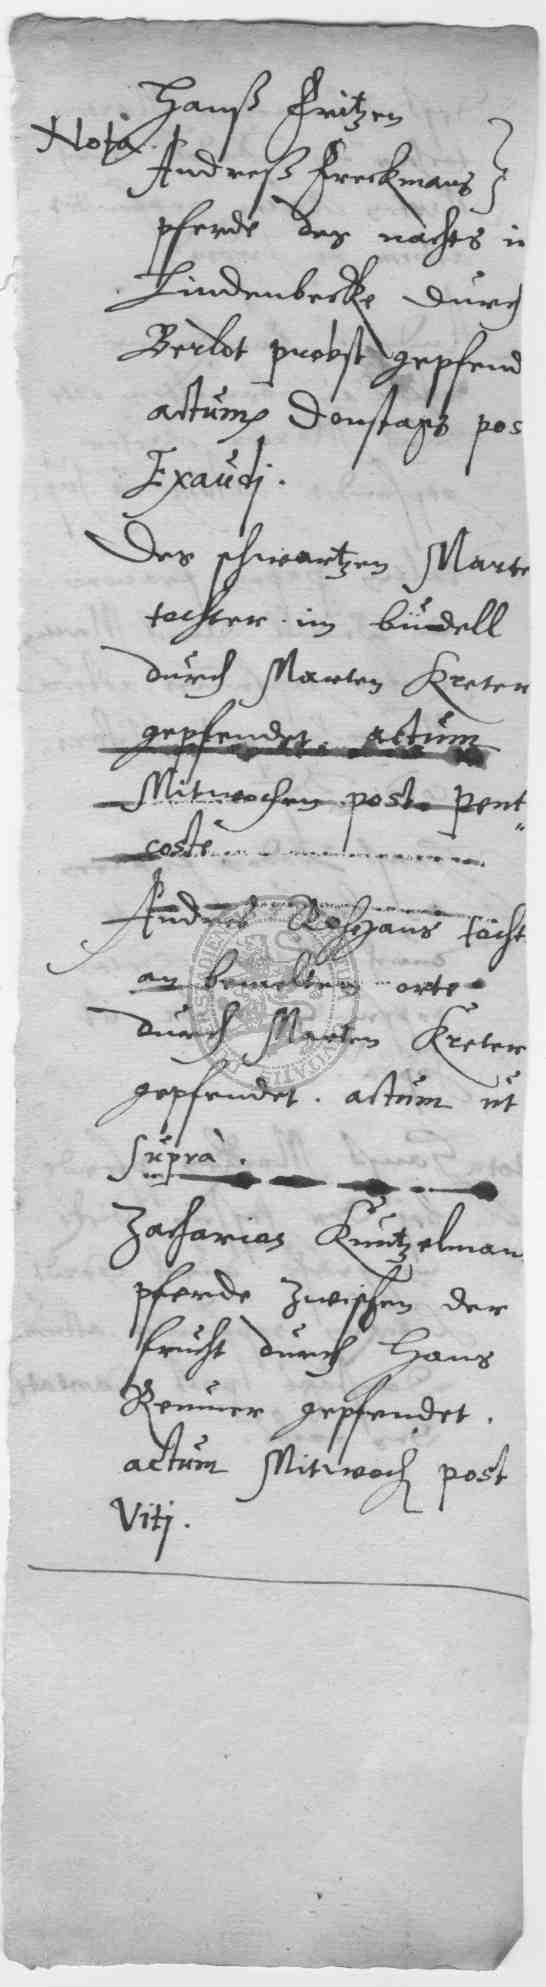 Hanß Fritzen
Nota
Andreß Freckmans
pferde des nachts in
Lindenbecke durch
Berlot probst gepfend
actum Donstags pos
Exaudj.
Des schwartzen Marte
tochter im büdell
durch Marten Kreter
gepfendet. actum
Mitwochen post pent
coste
Andres Roshans tocht
an bemelten orte
durch Marten Kreter
gepfendet. actum ut
supra.
Zacharias Kuntzelman
pferde zwischen der
frucht durch Hans
Renner gepfendet.
actum Mitwoch post
Vitj.